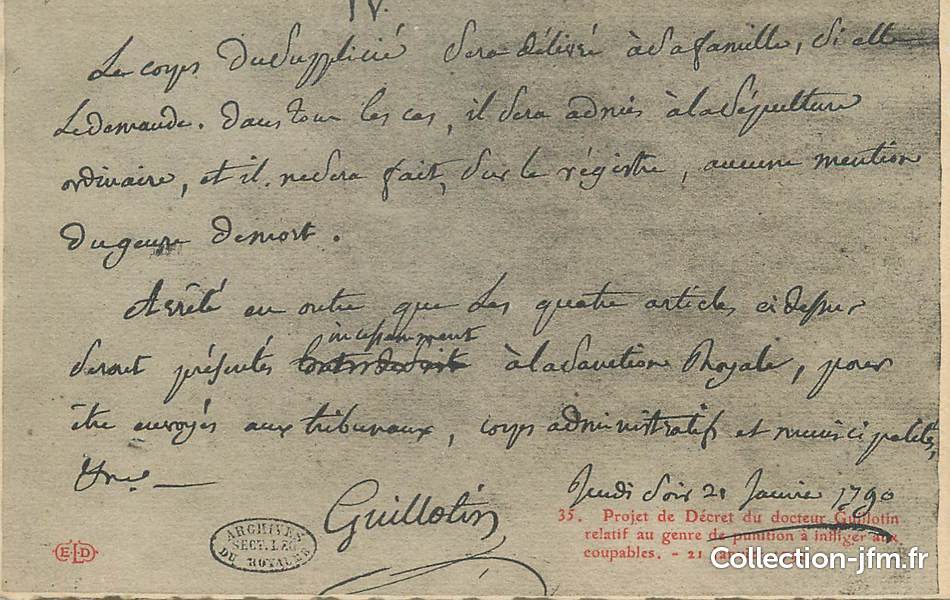 IV.
Le corps du Supplicié Sera délivré à Sa famille, Si elle
Le demande. dans tous les cas, il Sera admis à la Sépulture
ordinaire, et il ne Sera fait, Sur le régistre, aucune mention
Du genre De mort.
Arrêté en outre que Les quatre articles ci dessus
incessamment
Seront présentés à la Sanction Royale, pour
être envoyés aux tribunaux, corps administratifs et municipalités,
&c.
Jeudi Soir 21 Janvier 1790
Guillotin
ARCHIVES
SECT.
DU ROYAUME
ELD
35. Projet de Décret du docteur Guillotin
relatif au genre de punition à infliger aux
coupables. - 21
Collection-jfm.fr